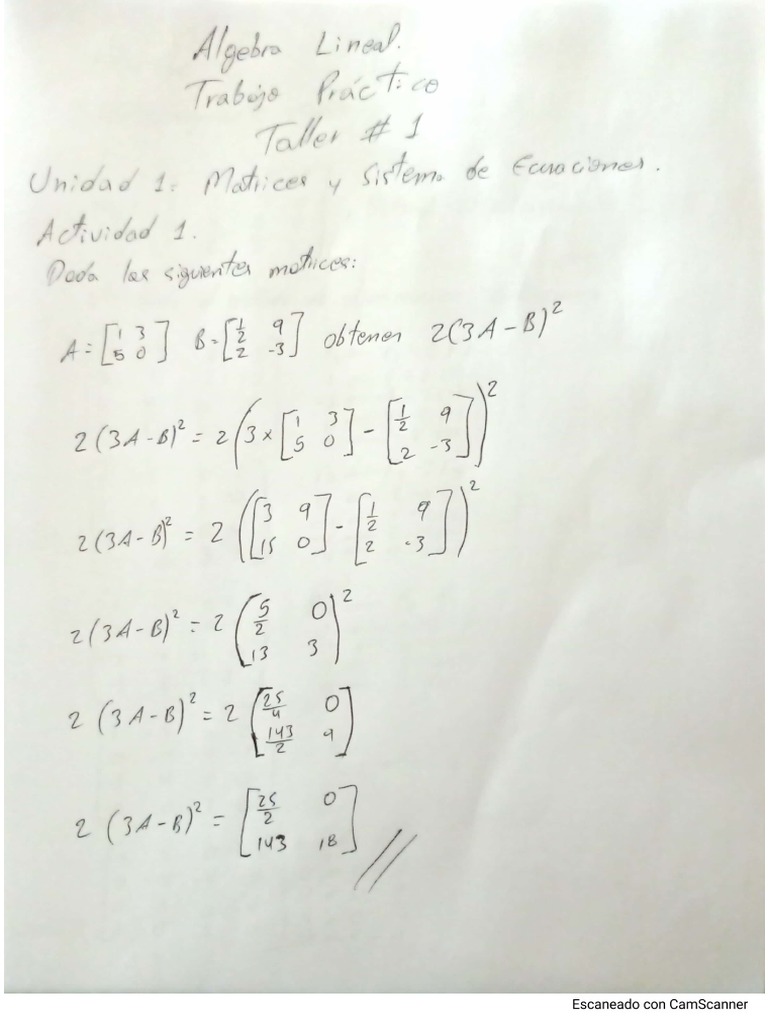 Algebra Lineal.
Trabajo Práctico
Taller # 1
Unidad 1: Matrices y Sistema de Ecuaciones.
Actividad 1.
Dada las siguientes matrices:
A = [1 3; 5 0] B = [1/2 9; 2 -3] obtener 2(3A-B)²
2(3A-B)² = 2(3×[1 3; 5 0] - [1/2 9; 2 -3])²
2(3A-B)² = 2([3 9; 15 0] - [1/2 9; 2 -3])²
2(3A-B)² = 2(5/2 0; 13 3)²
2(3A-B)² = 2[25/4 0; 143/2 9]
2(3A-B)² = [25/2 0; 143 18] //
Escaneado con CamScanner